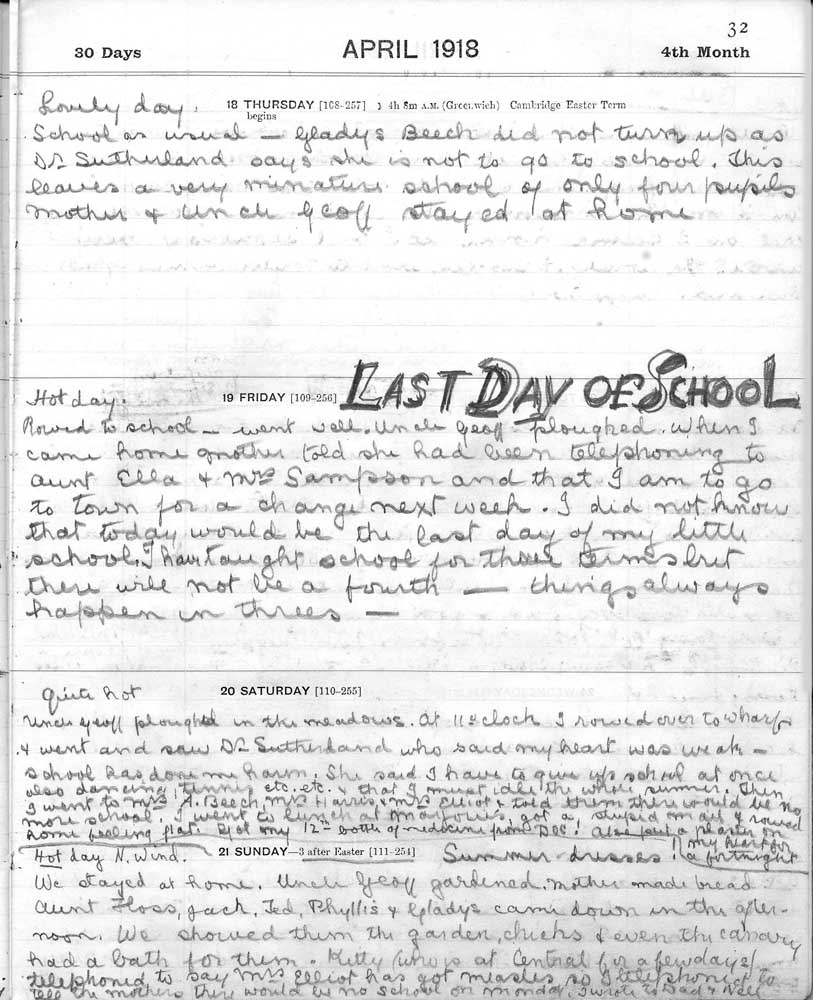 32
30 Days APRIL 1918 4th Month
Lovely day. 18 THURSDAY [108-257] ☽ 4h 8m A.M. (Greenwich) Cambridge Easter Term
begins
School as usual — Gladys Beech did not turn up as
Dr Sutherland says she is not to go to school. This
leaves a very minature school of only four pupils
Mother & Uncle Geoff stayed at home
Hot day. 19 FRIDAY [109-256] LAST DAY OF SCHOOL
Rowed to school — went well. Uncle Geoff ploughed. When I
came home mother told she had been telephoning to
Aunt Ella & Mrs Sampson and that I am to go
to town for a change next week. I did not know
that today would be the last day of my little
school. I have taught school for three terms but
there will not be a fourth — things always
happen in threes —
Quite hot 20 SATURDAY [110-255]
Uncle Geoff ploughed in the meadows. At 11 o'clock I rowed over to Wharf
& went and saw Dr Sutherland who said my heart was weak —
school has done me harm. She said I have to give up school at once
also dancing, tennis etc. etc. & that I must idle the whole summer. Then
I went to Mrs A. Beech, Mrs Harris & Mrs Elliot & told them there would be no
more school. I went to lunch at Marjorie's, got a stupid mail & rowed
home feeling flat. Got my 12th bottle of medicine from Dec! Also put a plaster on
my heart for
Hot day N. Wind. 21 SUNDAY—3 after Easter [111-254] Summer dresses! a fortnight
We stayed at home. Uncle Geoff gardened. Mother made bread
Aunt Floss, Jack, Ted, Phyllis & Gladys came down in the after-
noon. We showed them the garden, chicks & even the canary
had a bath for them. Kitty (who is at Central for a few days)
telephoned to say Mrs Elliot has got measles so I telephoned to
tell the mothers there would be no school on Monday. I wrote to Dad & Nell